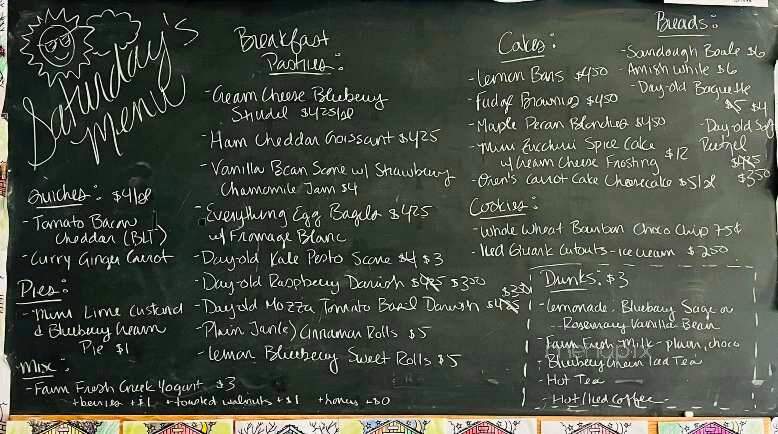 Saturday's
Menu
Quiches: $4/sl
- Tomato Bacon
Cheddar (BLT)
- Curry Ginger Carrot
Pies:
- Mini Lime Custard
& Blueberry Cream
Pie $1
Mix:
- Farm Fresh Greek Yogurt $3
+ berries + $1 + toasted walnuts + $1 + honey + $0
Breakfast
Pastries:
- Cream Cheese Blueberry
Strudel $4.25/sl
- Ham Cheddar Croissant $4.25
- Vanilla Bean Scone w/ Strawberry
Chamomile Jam $4
- Everything Egg Bagels $4.25
w/ Fromage Blanc
- Day-old Kale Pesto Scone $4 $3
- Day-old Raspberry Danish $4.25 $3.00
- Day-old Mozza Tomato Basil Danish $4.25 $3.00
- Plain Jan(e) Cinnamon Rolls $5
- Lemon Blueberry Sweet Rolls $5
Cakes:
- Lemon Bars $4.50
- Fudge Brownies $4.50
- Maple Pecan Blondies $4.50
- Mini Zucchini Spice Cake
w/ Cream Cheese Frosting $12
- Oren's Carrot Cake Cheesecake $5/sl
Cookies:
- Whole Wheat Bourbon Choco Chip 75¢
- Iced Cutouts - ice cream $2.00
Breads:
- Sourdough Boule $6
- Amish White $6
- Day-old Baguette
$5 $4
- Day-old Soft
Pretzel
$4.25
$3.50
Drinks: $3
- Lemonade - Blueberry Sage or
Rosemary Vanilla Bean
- Farm Fresh Milk - plain, choco
- Blueberry Cream Iced Tea
- Hot Tea
- Hot/Iced Coffee
menupix